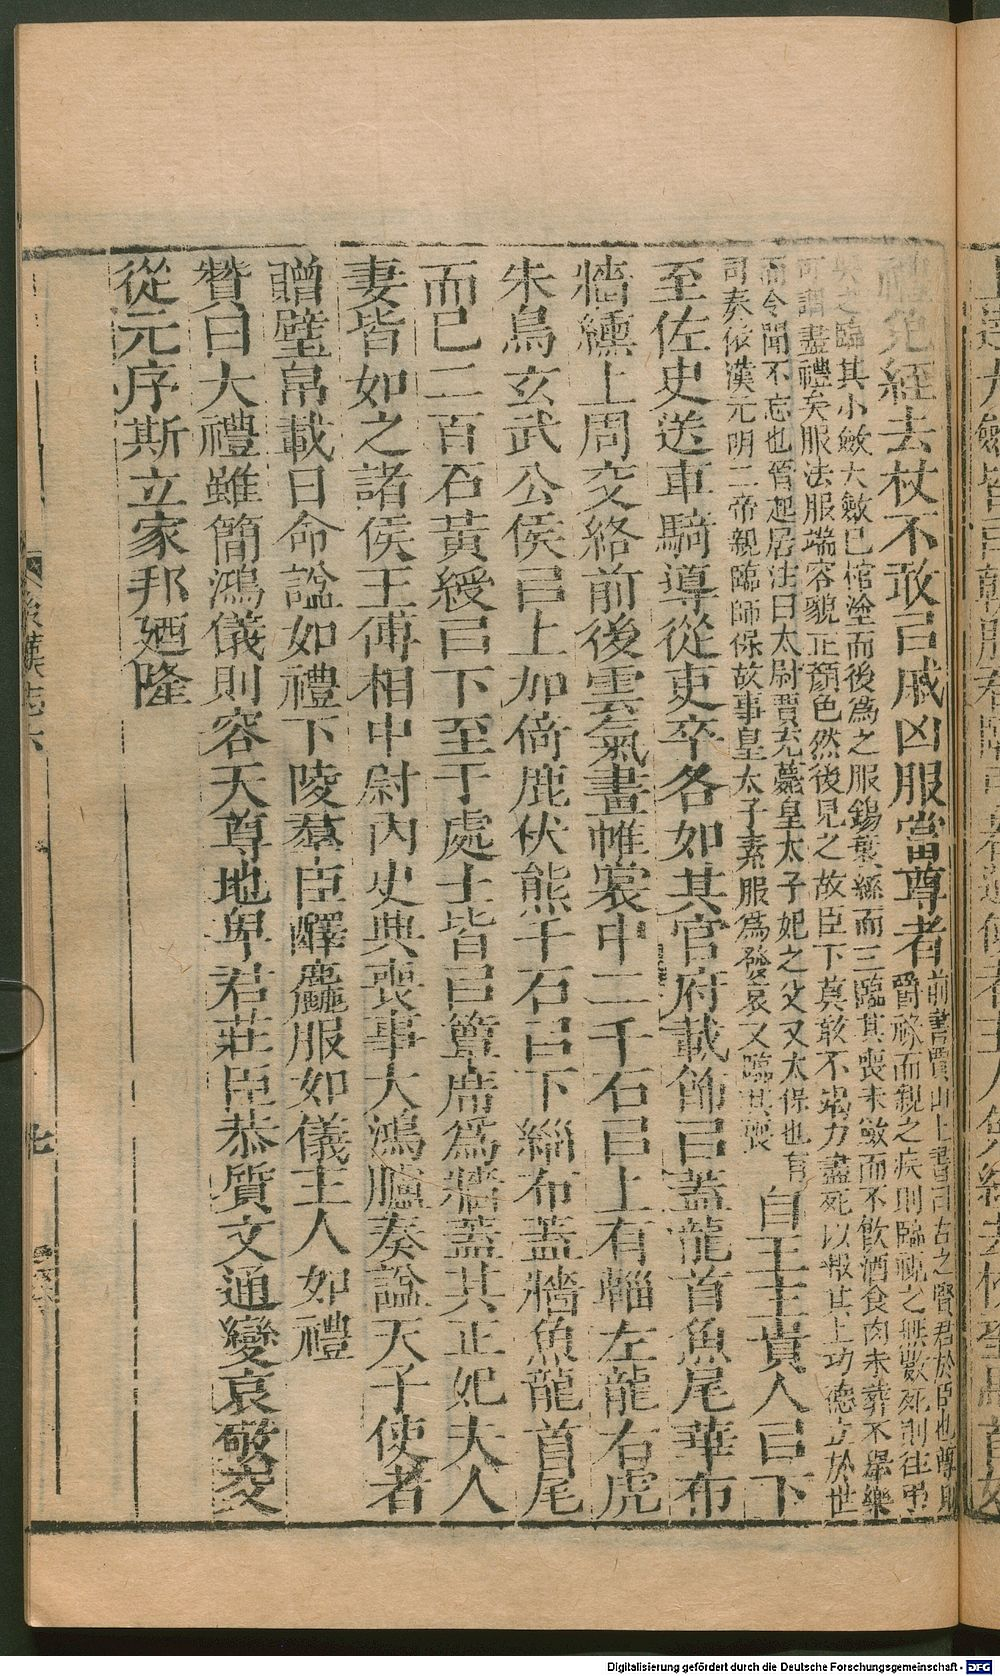 絰去杖不敢㠯戚凶服當尊者前書賈山上書曰古之賢君於臣也尊其
爵祿而親之疾則臨視之無數死則往弔
哭之臨其小斂大斂已棺塗而後爲之服錫衰絰而三臨其喪未斂而不飲酒食肉未葬不舉樂
可謂盡禮矣服法服端容貌正顏色然後見之故臣下莫敢不竭力盡死以報其上功德立於世
而令聞不忘也晉起居注曰太尉賈充薨皇太子妃之父又太保也有
司奏依漢元明二帝親臨師保故事皇太子素服爲發哀又臨其喪
自王主貴人㠯下
至佐史送車騎導從吏卒各如其官府載飾㠯蓋龍首魚尾華布
牆纁上周交絡前後雲氣畫帷裳中二千石㠯上有輜左龍右虎
朱鳥玄武公侯㠯上加倚鹿伏熊千石㠯下緇布蓋牆魚龍首尾
而已二百石黃綬㠯下至于處士皆㠯簟席爲牆蓋其正妃夫人
妻皆如之諸侯王傅相中尉內史典喪事大鴻臚奏諡天子使者
贈璧帛載日命諡如禮下陵羣臣醳麤服如儀主人如禮
贊曰大禮雖簡鴻儀則容天尊地卑君莊臣恭質文通變哀敬交
從元序斯立家邦廼隆
後漢志六
七
Digitalisierung gefördert durch die Deutsche Forschungsgemeinschaft - DFG